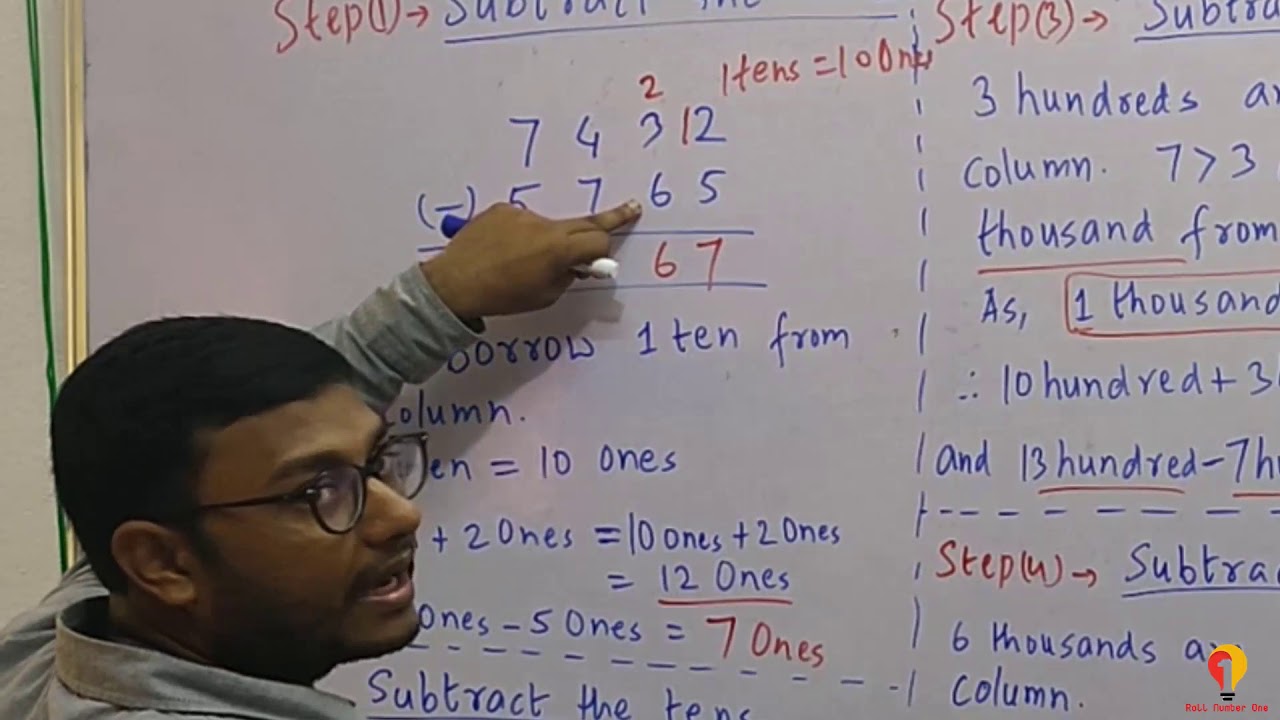 Step(1)→ Subtract the
1tens = 10 Ones
2
7 4 3 12
(−) 5 7 6 5
6 7
borrow 1 ten from
column.
ten = 10 ones
+ 2 Ones = 10 ones + 2 Ones
= 12 Ones
Ones − 5 Ones = 7 Ones
Subtract the tens
Step(3)→
3 hundreds
column. 7 > 3
thousand from
As, 1 thousand
∴ 10 hundred + 3
and 13 hundred − 7
Step(4)→
6 thousands
column.
Roll Number One